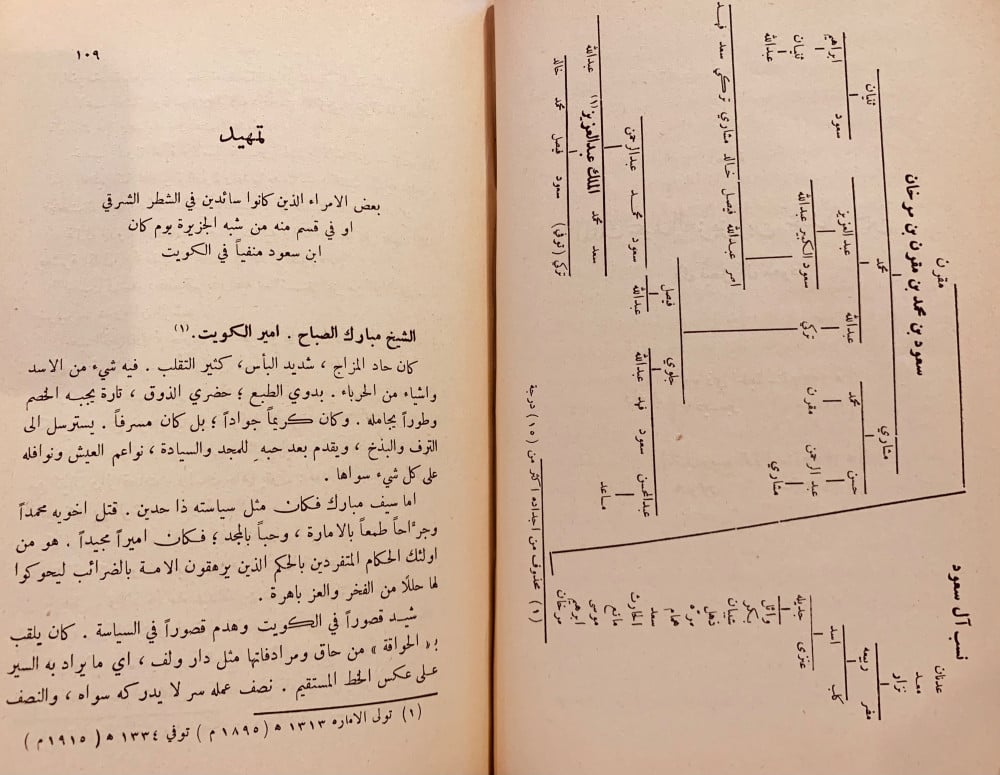 نسب آل سعود
عدنان
معد
نزار
مضر ربيعه
كلب اسد
عنزى جديله
وائل
بكر
شيبان
ذهل
مره
همام
سعد
الحارث
مانع
موسى
ابرهيم
مرخان
مقرن
سعود بن محمد بن مقرن بن مرخان
مشاري محمد ثنيان
حسن محمد عبدالله عبدالعزيز سعود ابراهيم
عبد الرحمن مقرن تركي سعود الكبير عبدالله ثنيان
مشاري عبدالله
عبدالله فيصل خالد مشاري تركي سعد فهد
جلوي فيصل
عبدالمحسن سعود فهد عبدالله عبدالله سعود محمد عبدالرحمن
مساعد سعد محمد الملك عبدالعزيز (١) عبدالله
تركي (توفي) سعود فيصل محمد خالد
(١) محذوف من اجداده اكثر من (١٥) درجة
١٠٩
تمهيد
بعض الامراء الذين كانوا سائدين في الشطر الشرقي
او في قسم منه من شبه الجزيرة يوم كان
ابن سعود منفياً في الكويت
الشيخ مبارك الصباح . امير الكويت.(١)
كان حاد المزاج ، شديد البأس، كثير التقلب . فيه شيء من الاسد
واشياء من الحرباء . بدوي الطبع ؛ حضري الذوق ، تارة يجبه الخصم
وطوراً يجامله . وكان كريماً جواداً ؛ بل كان مسرفاً . يسترسل الى
الترف والبذخ ، ويقدم بعد حبه للمجد والسيادة ، نواعم العيش ونوافله
على كل شيء سواها .
اما سيف مبارك فكان مثل سياسته ذا حدين . قتل اخويه محمداً
وجرّاحاً طمعاً بالامارة ، وحباً بالمجد ؛ فكان اميراً مجيداً . هو من
اولئك الحكام المتفردين بالحكم الذين يرهقون الامة بالضرائب ليحوكوا
لها حللًا من الفخر والعز باهرة .
شيد قصوراً في الكويت وهدم قصوراً في السياسة . كان يلقب
بـ « الحواقة » من حاق ومرادفاتها مثل دار ولف ، اي ما يراد به السير
على عكس الخط المستقيم . نصف عمله سر لا يدركه سواه ، والنصف
(١) تولى الاماره ١٣١٣ هـ (١٨٩٥ م ) توفي ١٣٣٤ هـ ( ١٩١٥ م )